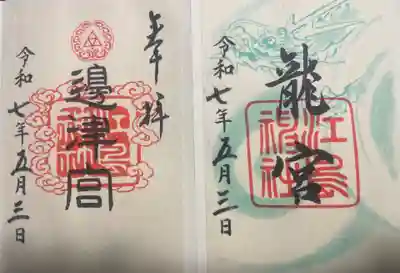 奉拝
邊津宮
江島神社
令和七年五月三日
龍宮
江島神社
令和七年五月三日